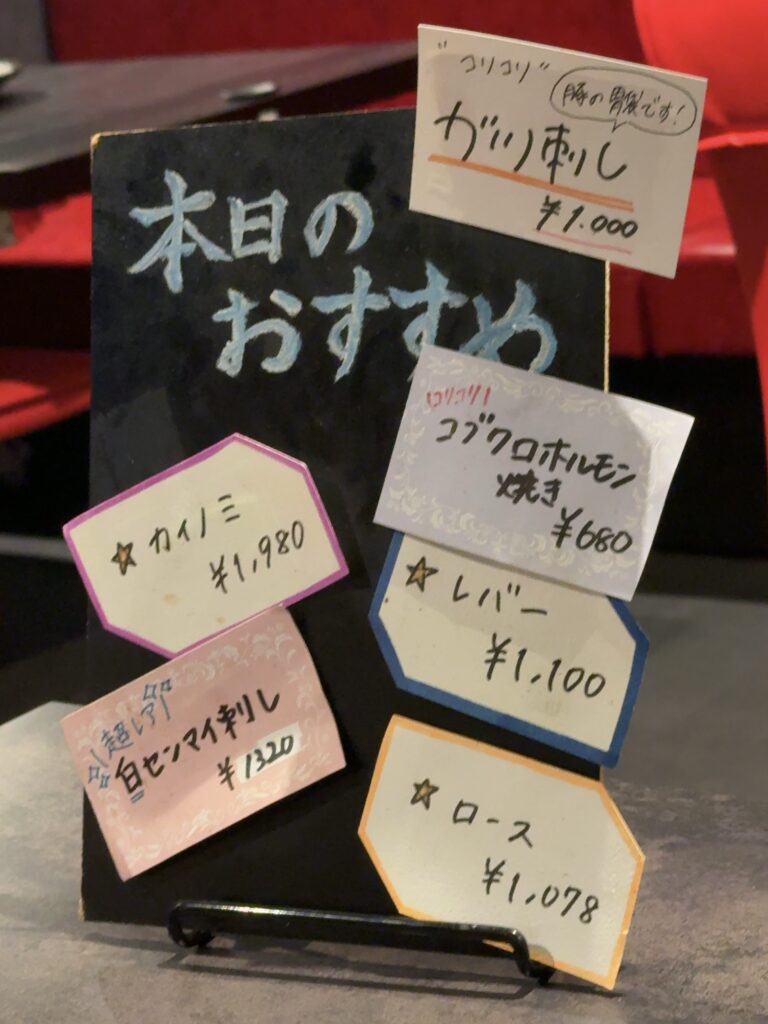 本日の
おすすめ
"コリコリ"
豚の胃袋です!
ガツ刺し
¥1.000
コリコリ!
コブクロホルモン
焼き
¥680
☆カイノミ
¥1,980
☆レバー
¥1,100
超レア!
白センマイ刺し
¥1320
☆ロース
¥1,078